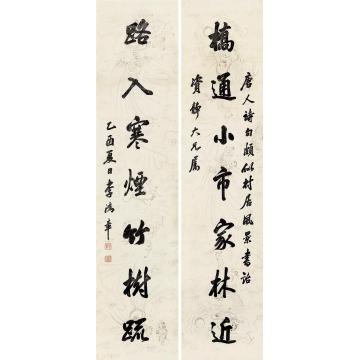 唐人詩句頗似村居風景書詒
橋通小市家林近
大兄屬
路入寒煙竹樹疏
乙酉夏日李鴻章